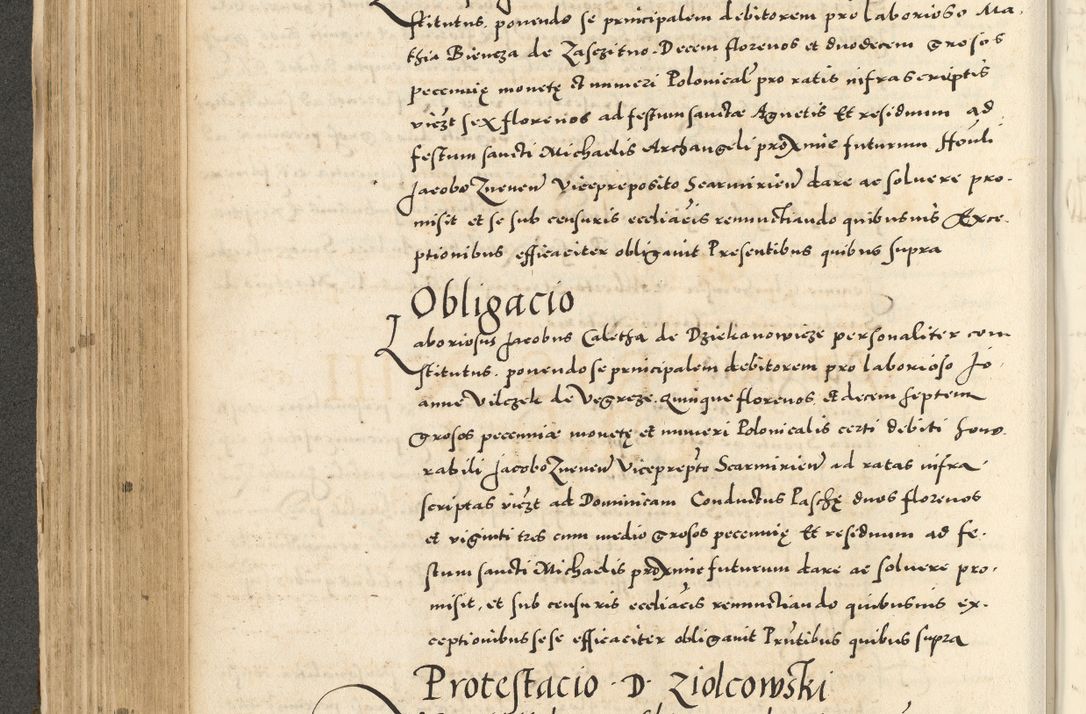 stitutus. ponendo se principalem debitorem pro laborioso Ma-
thia Biencza de Zasczitno. Decem florenos et duodecem grosos
peccunię monetę et numeri Polonical' pro ratis infrascriptis
viczt sex florenos ad festum sanctae Agnetis Et residuum ad
festum sancti Michaelis Archangeli proxime futurum Honli
Jacobo Zneuen' Vicepreposito Scarmirien' dare ac soluere pro-
misit et se sub censuris eccliacis renunctiando quibusuis Exce-
ptionibus efficaciter obligauit Presentibus quibus supra
Obligacio
Laboriosus Jacobus Caletha de Dziekanowicze personaliter con
stitutus. ponendo se principalem debitorem pro laborioso Jo-
anne Vilczek de Vegrcze. Quinque florenos et decem septem
grosos peccuniae monetę et numeri Polonicalis certi debiti hono-
rabili Jacobo Zneuen' Viceprepto Scarmirien' ad ratas infra-
scriptas viczt ad Dominicam Conductus Paschę duos florenos
et viginti tres cum medio grosos peccunię Et residuum ad fe-
stum sancti Michaelis proxime futurum dare ac soluere pro-
misit, et sub censuris eccliacis renunctiando quibusuis ex-
ceptionibus sese efficaciter obligauit Prntibus quibus supra
Protestacio D. Ziolcowski